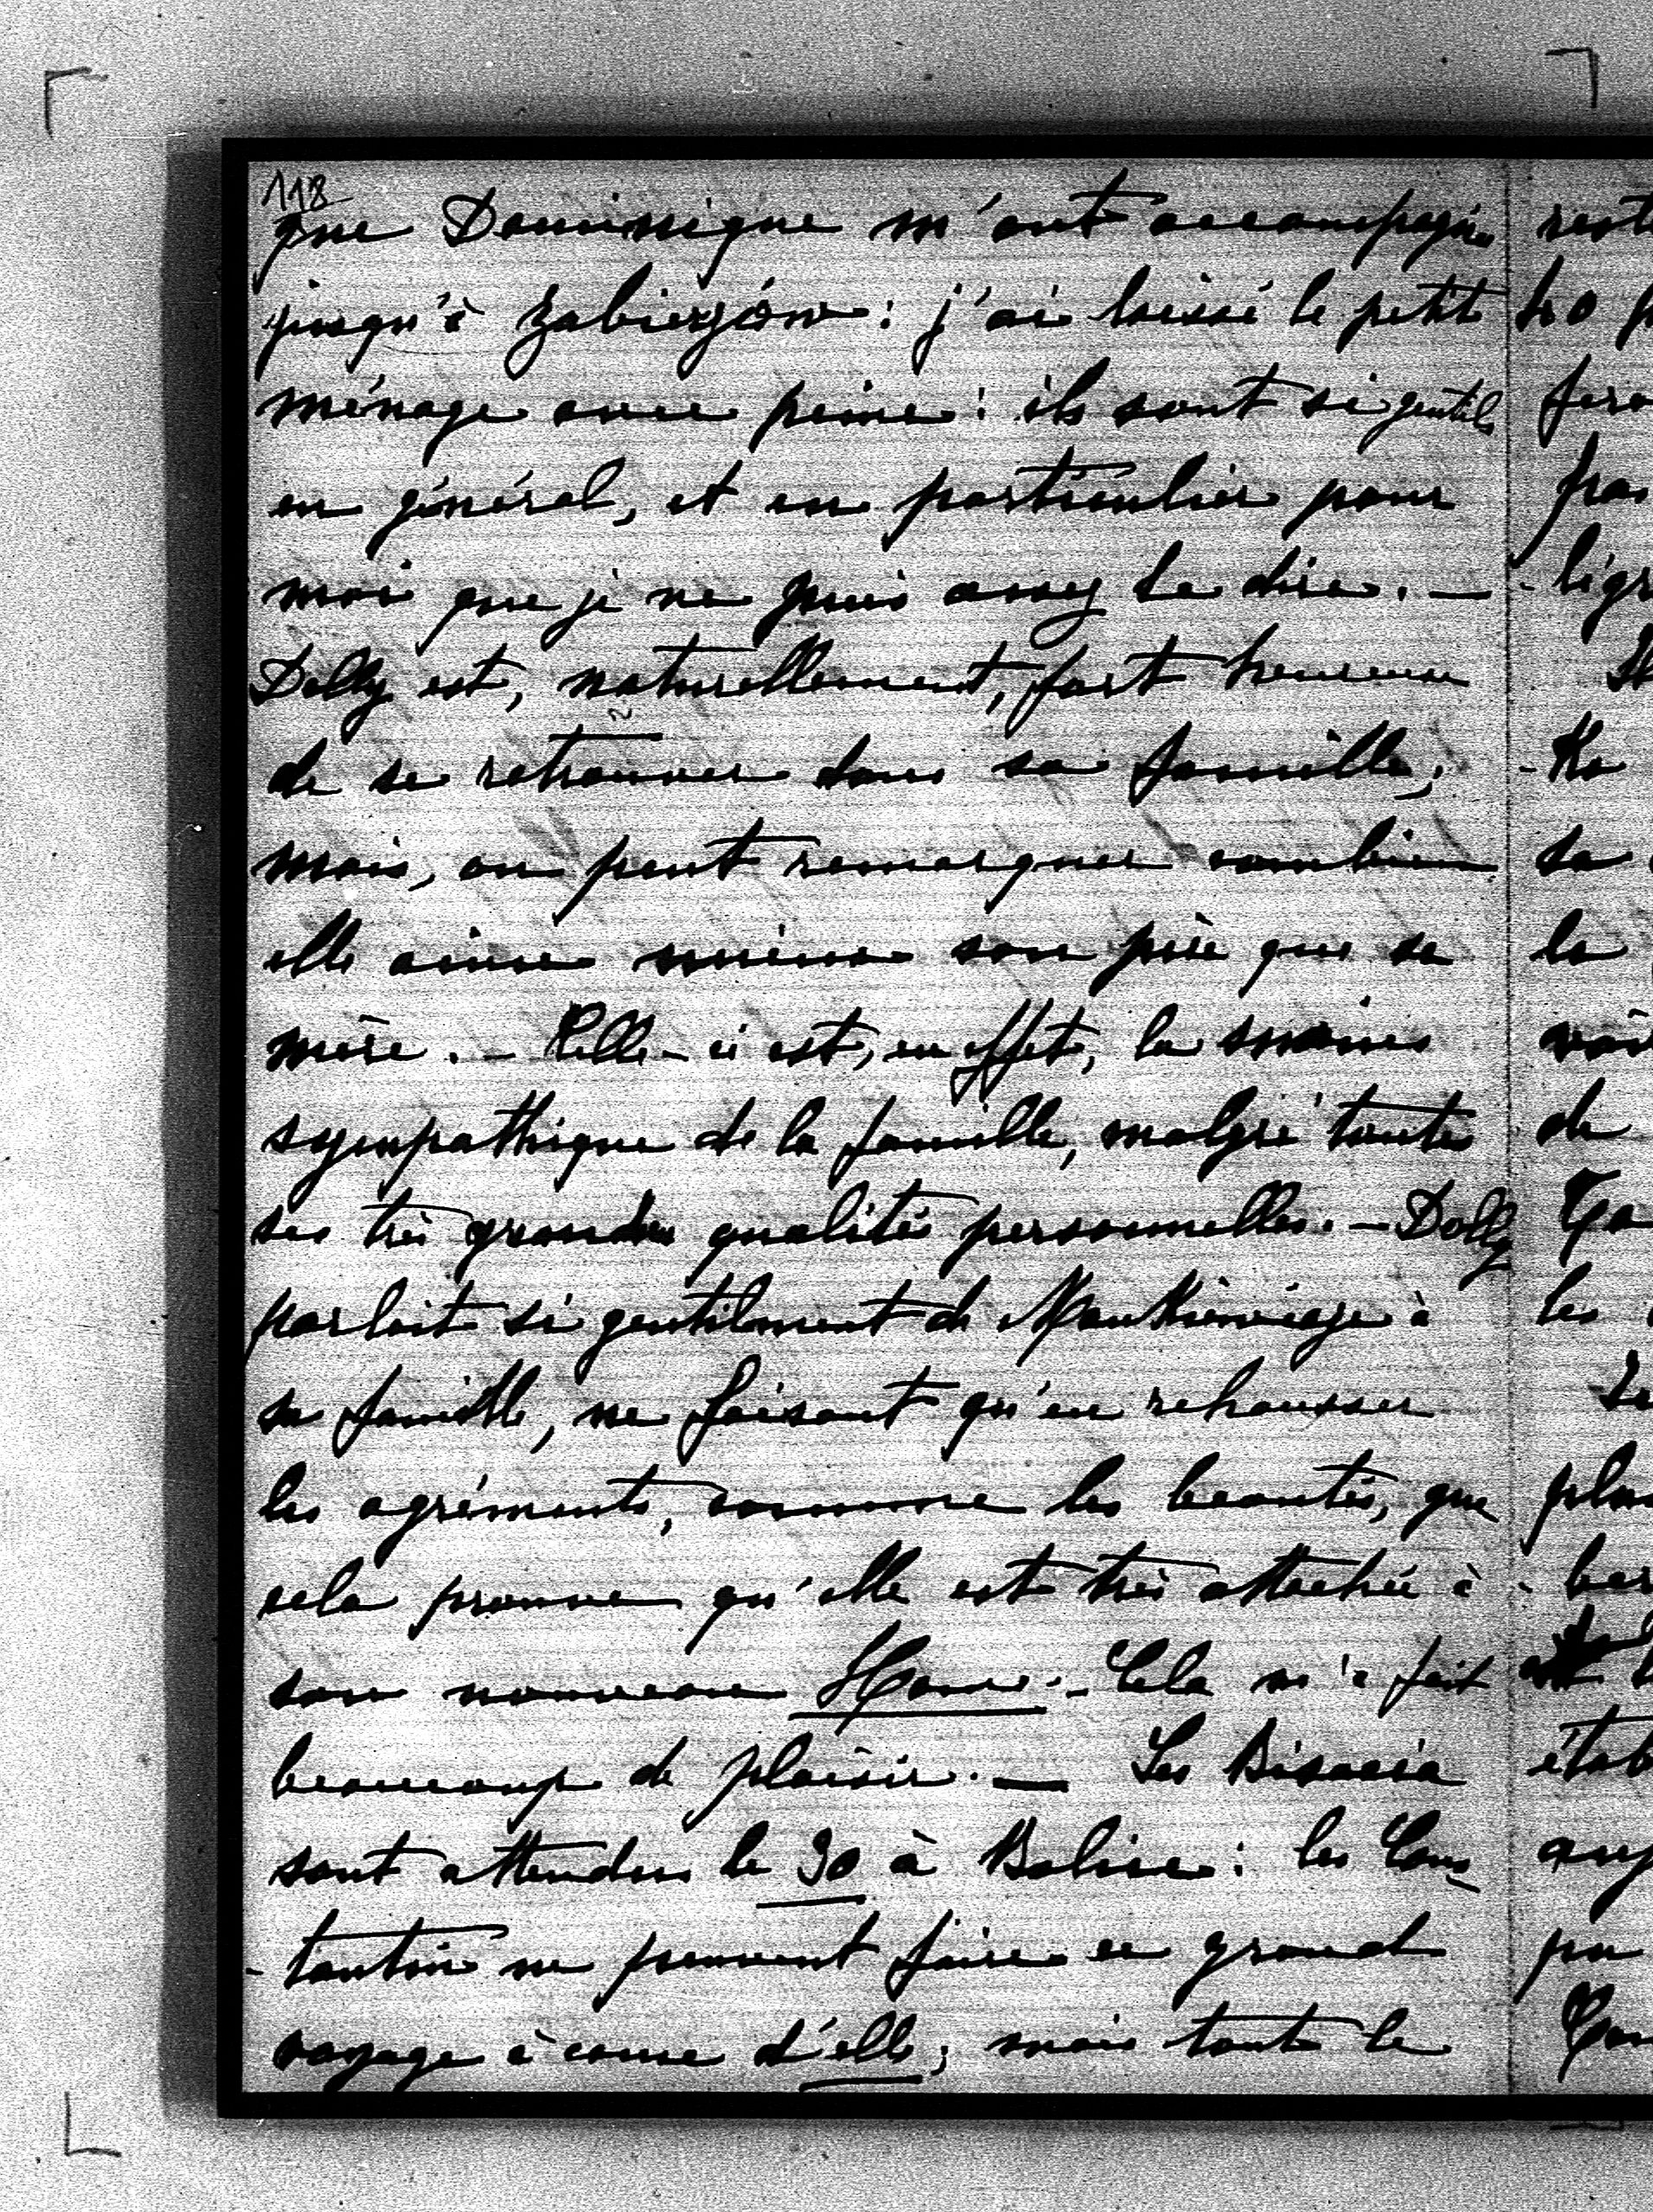 118
que Dominique m'ont accompagné
jusqu'à Zabierzów : j'ai laissé le petit
ménage avec peine : ils sont si gentils
en général, et en particulier pour
moi que je ne puis assez le dire. —
Dolly est, naturellement, fort heureuse
de se retrouver dans sa famille,
mais, on peut remarquer combien
elle aime mieux son père que sa
mère. – Celle-ci est, en effet, la moins
sympathique de la famille, malgré toutes
ses très grandes qualités personnelles. – Dolly
parlait si gentilment de Mankiewicze à
sa famille, ne faisant qu'en rehausser
les agréments, comme les beautés, que
cela prouve qu'elle est très attachée à
son nouveau Home. – Cela m'a fait
beaucoup de plaisir. — Les Bisaccia
sont attendus le 30 à Balice : les Cons
- tantin ne peuvent faire ce grand
voyage à cause d'elle ; mais toute le
rest
la
de
les
plus